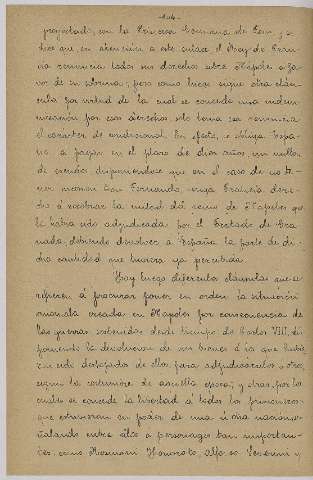 - 104 -
proyectado, con la Princesa Germana de Foix, y
dice que en atención a este enlace el Rey de Fran-
cia renuncia todos sus derechos sobre Nápoles a fa-
vor de su sobrina; pero como luego sigue otra cláu-
sula por virtud de la cual se concede una indem-
nización por esos derechos, solo toma esa renuncia
el carácter de condicional. En efecto, se obliga Espa-
ña a pagar en el plazo de diez años un millón
de escudos, disponiéndose que en el caso de no te-
ner sucesión Don Fernando, tenga Francia dere-
cho a recobrar la mitad del reino de Nápoles que
le había sido adjudicada por el Tratado de Gra-
nada, debiendo devolver a España la parte de di-
cha cantidad que hubiera ya percibida.
Hay luego diferentes cláusulas que se
refieren a procurar poner en orden la situación
anómala creada en Nápoles por consecuencia de
las guerras sostenidas desde tiempo de Carlos VIII, dis-
poniendo la devolución de sus bienes a los que habían
sido despojados de ellos para adjudicárselos a otros,
según la costumbre de aquella época; y otras por las
cuales se concede la libertad a todos los prisioneros
que estuviesen en poder de una u otra nación, se-
ñalando entre ellos a personajes tan importan-
tes como